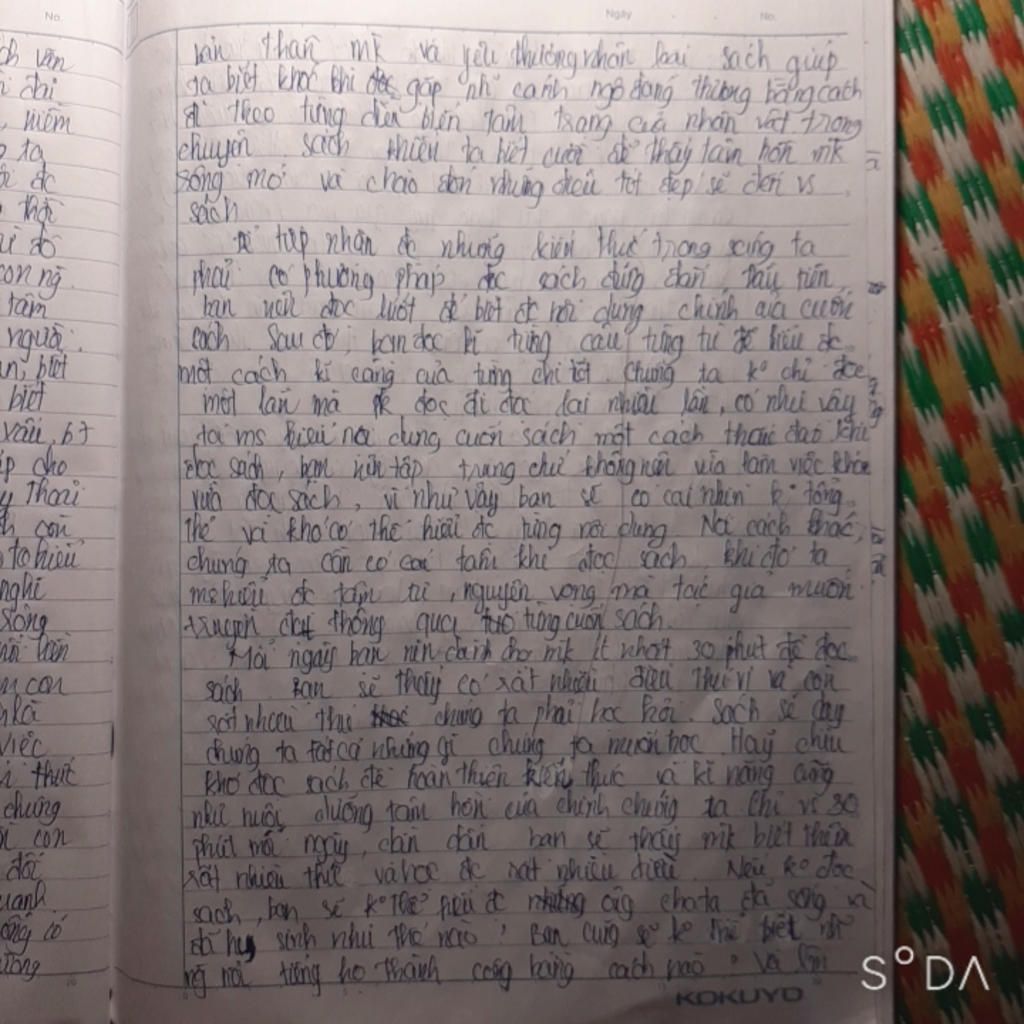 No.
Ngày No.
ch văn
bản thân mk và yêu thương nhân loại sách giúp
đại
ta biết khóc khi gặp nh cảnh ngộ đáng thương bằng cách
, niềm
đi theo từng diễn biến tâm trạng của nhân vật trong
ta
chuyện sách khiến ta biết cười để thấy tâm hồn mk
đc
sống mới và chào đón những điều tốt đẹp sẽ đến vs
thời
sách
đó
Để tiếp nhận đc những kiến thức trong ta
con ng
phải có phương pháp đọc sách đúng đắn đầu tiên
tâm
bạn nên đọc lướt để biết đc nội dung chính của cuốn
người.
sách Sau đó, bạn đọc kĩ từng câu từng từ để hiểu đc
n, biết
một cách kĩ càng của từng chi tiết. Chúng ta k° chỉ đọc
biết
một lần mà đọc đi đọc lại nhiều lần, có như vậy
vấu, bt
ta ms hiểu nội dung cuốn sách một cách thấu đáo khi
p cho
đọc sách, bạn nên tập trung chứ không nên vừa làm việc khác
y Thơi
vừa đọc sách, vì như vậy bạn sẽ có cái nhìn k° tổng
h còn
thể và khó có thể hiểu đc từng nội dung. Nói cách khác,
to hiểu
chúng ta cần có cái tâm khi đọc sách khi đó ta
nghĩ
ms hiểu đc tâm tư, nguyện vọng mà tác giả muốn
sống
truyền đạt thông qua từng cuốn sách.
Mỗi ngày bạn nên dành cho mk ít nhất 30 phút để đọc
n con
sách Bạn sẽ thấy có rất nhiều điều thú vị và còn
rất nhiều thứ chúng ta phải học hỏi. Sách sẽ dạy
việc
chúng ta tất cả những gì chúng ta muốn học. Hãy chịu
thức
khó đọc sách để hoàn thiện kiến thức và kĩ năng cũng
chúng
như nuôi dưỡng tâm hồn của chính chúng ta Chỉ vs 30
con
phút mỗi ngày, dần dần bạn sẽ thấy mk biết thêm
đối
rất nhiều thứ và học đc rất nhiều điều. Nếu k° đọc
uanh
sách, bạn sẽ k° thể hiểu đc ông cha ta đã sống và
có
đã hy sinh như thế nào, Bạn cũng sẽ k thể biết nh
ng nổi tiếng họ thành công bằng cách nào. Và
KOKUYO
S°DΛ